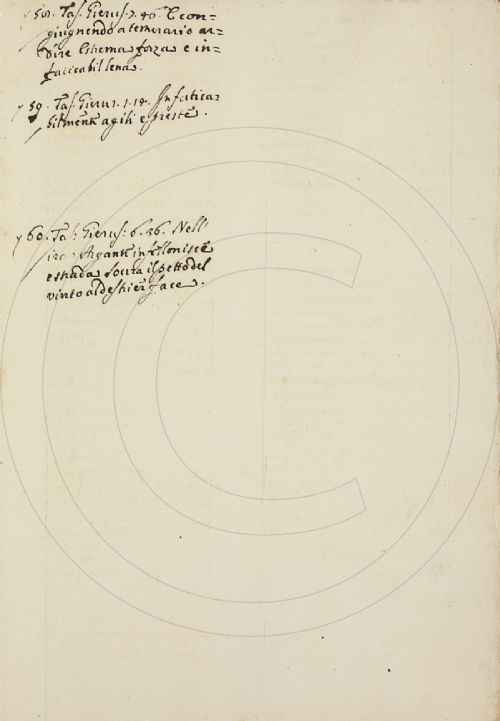 58. Tas. Gierus. 2. 46. E con=
giugnendo a temerario ar=
dire Estrema forza e in=
faticabil lena.
59. Tas. Gierus. 1. 18. Infatica=
bilmente agili e preste.
60. Tas: Gierus: 6. 36. Nell'
ira Argante infellonisce
e strada Sovra il petto del
vinto al destrier face.